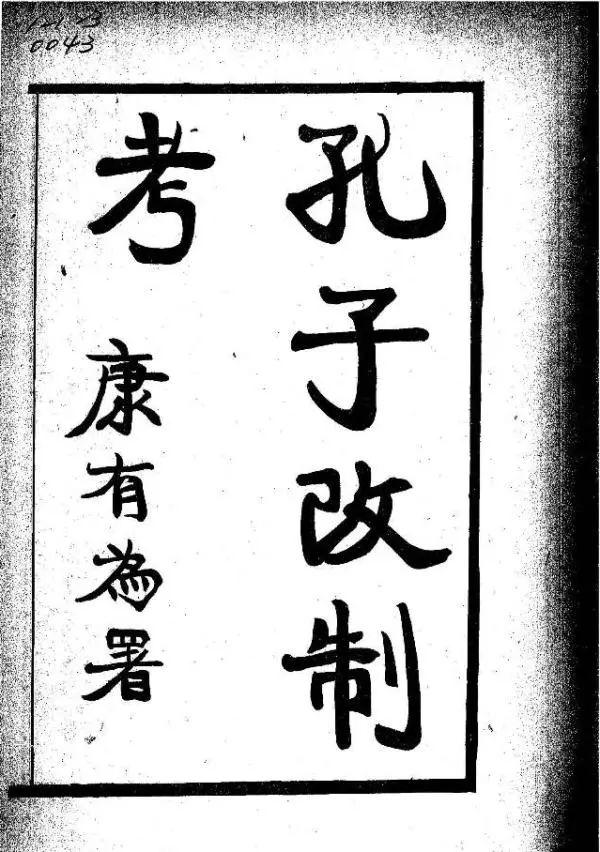 0043
孔子改制
考
康有為署